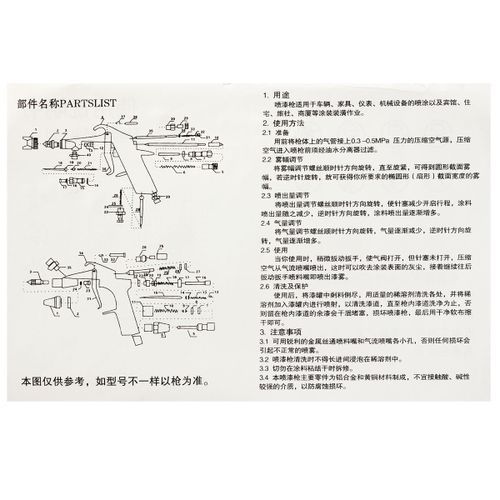 部件名称PARTSLIST
本图仅供参考，如型号不一样以枪为准。
1. 用途
喷漆枪适用于车辆、家具、仪表、机械设备的喷涂以及宾馆、住
宅、旅社、商厦等涂装装潢作业。
2. 使用方法
2.1 准备
用前将枪体上的气管接上0.3-0.5MPa 压力的压缩空气源，压缩
空气进入喷枪前须经油水分离器过滤。
2.2 雾幅调节
将雾幅调节螺丝顺时针方向旋转，直至旋紧，可得到圆形截面雾
幅，若逆时针旋转，就可获得你所要求的椭圆形（扇形）截面宽度的雾
幅。
2.3 喷出量调节
将喷出量调节螺丝顺时针方向旋转，使针塞减少开启行程，涂料
喷出量随之减少，逆时针方向旋转，涂料喷出量逐渐增多。
2.4 气量调节
将气量调节螺丝顺时针方向旋转，气量逐渐减少，逆时针方向旋
转，气量逐渐增多。
2.5 使用
当你使用时，稍微扳动扳手，使气阀打开，但针塞未打开，压缩
空气从气流喷嘴喷出，这时可以吹去涂装表面的灰尘，接着继续往后
扳动扳手喷料嘴即喷出漆雾。
2.6 清洗及保护
使用后，将漆罐中剩料倒尽，用适量的稀溶剂清洗各处，并将稀
溶剂加入漆罐内进行喷射，以清洗漆道，直至枪内漆道洗净为止，否
则留在枪内漆道的余漆会干涸堵塞，损坏喷漆枪，最后用干净软布擦
干即可。
3. 注意事项
3.1 可用锐利的金属丝通喷料嘴和气流喷嘴各小孔，否则任何损坏会
引起不正常的喷雾。
3.2 喷漆枪清洗时不得长进间浸泡在稀溶剂中。
3.3 切勿在涂料粘结于时拆修。
3.4 本喷漆枪主要零件为铝合金和黄铜材料制成，不宜接触酸、碱性
较强的介质，以防腐蚀损坏。